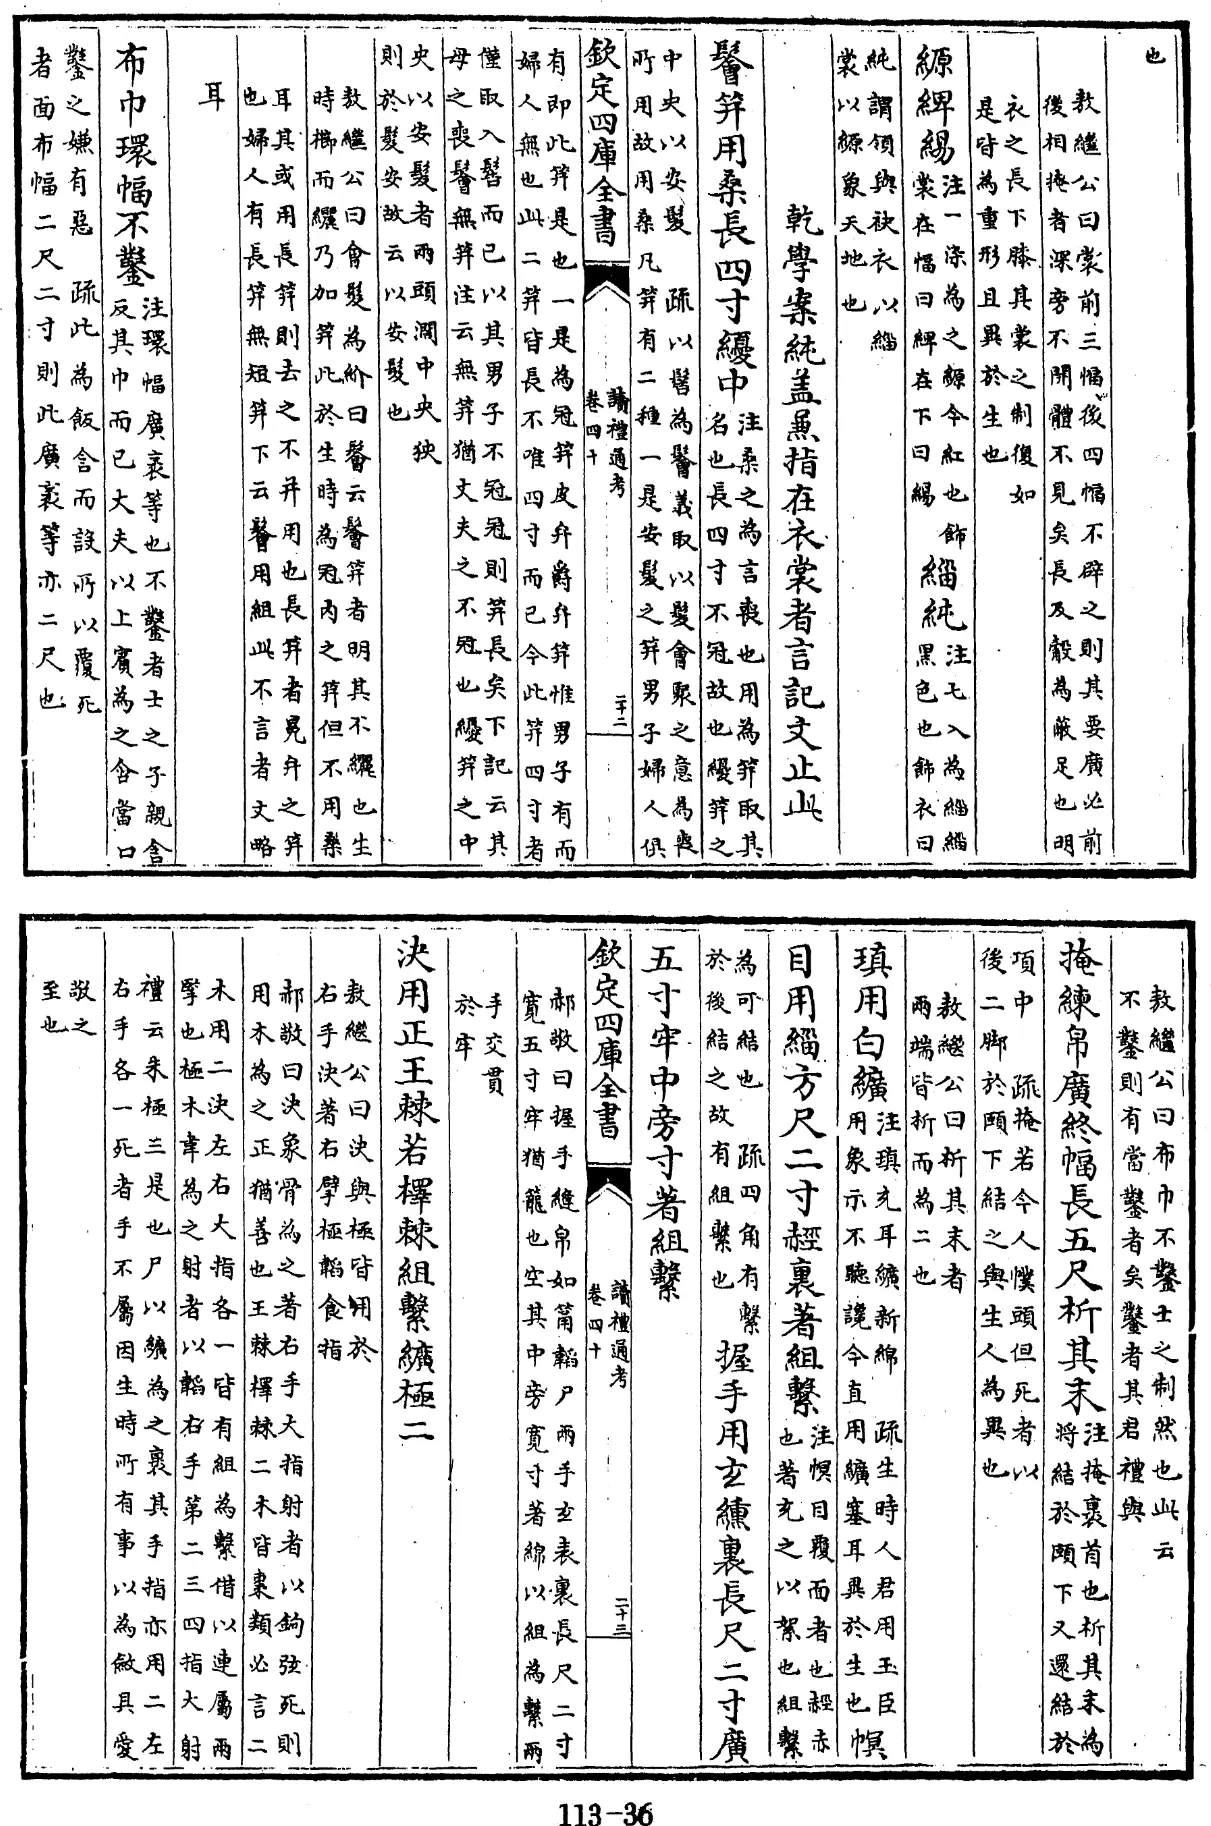 也
敖繼公曰裳前三幅後四幅不辟之則其要廣必前
後相掩者深旁不開體不見矣長及觳為蔽足也明
衣之長下膝其裳之制復如
是皆為重形且異於生也
縓綼緆注一染為之縓今紅也飾裳在幅曰綼在下曰緆緇純注七入為緇緇黑色也飾衣曰
純謂領與袂衣以緇
裳以縓象天地也
乾學案純蓋兼指在衣裳者言記文止此
鬠笄用桑長四寸纋中注桑之為言喪也用為笄取其名也長四寸不冠故也纋笄之
中央以安髮 疏以髻為鬠義取以髮會聚之意為喪
所用故用桑凡笄有二種一是安髮之笄男子婦人俱
欽定四庫全書 讀禮通考 卷四十 二十二
有即此笄是也一是為冠笄皮弁爵弁笄惟男子有而
婦人無也此二笄皆長不唯四寸而已今此笄四寸者
僅取入髻而已以其男子不冠冠則笄長矣下記云其
母之喪鬠無笄注云無笄猶丈夫之不冠也纋笄之中
央以安髮者兩頭濶中央狹
則於髮安故云以安髮也
敖繼公曰會髮為紒曰鬠云鬠笄者明其不纚也生
時櫛而纚乃加笄此於生時為冠内之笄但不用桑
耳其或用長笄則去之不并用也長笄者冕弁之笄
也婦人有長笄無短笄下云鬠用組此不言者文略
耳
布巾環幅不鑿注環幅廣袤等也不鑿者士之子親含反其巾而已大夫以上賓為之含當口
鑿之嫌有惡 疏此為飯含而設所以覆死
者面布幅二尺二寸則此廣袤等亦二尺也
敖繼公曰布巾不鑿士之制然也此云
不鑿則有當鑿者矣鑿者其君禮與
掩練帛廣終幅長五尺析其末注掩裹首也析其末為將結於頤下又還結於
項中 疏掩若今人幞頭但死者以
後二脚於頤下結之與生人為異也
敖繼公曰析其末者
兩端皆析而為二也
瑱用白纊注瑱充耳纊新綿 疏生時人君用玉臣用象示不聽讒今直用纊塞耳異於生也幎
目用緇方尺二寸䞓裏著組繫注幎目覆面者也䞓赤也著充之以絮也組繫
為可結也 疏四角有繫
於後結之故有組繫也握手用玄纁裏長尺二寸廣
五寸牢中旁寸著組繫
欽定四庫全書 讀禮通考 卷四十 二十三
郝敬曰握手縫帛如筩韜尸兩手玄表裏長尺二寸
寛五寸牢猶籠也空其中旁寛寸著綿以組為繫兩
手交貫
於牢
決用正王棘若檡棘組繫纊極二
敖繼公曰決與極皆用於
右手決著右擘極韜食指
郝敬曰決象骨為之著右手大指射者以鉤弦死則
用木為之正猶善也王棘檡棘二木皆棗類必言二
木用二決左右大指各一皆有組為繫借以連屬兩
掔也極木韋為之射者以韜右手第二三四指大射
禮云朱極三是也尸以纊為之裹其手指亦用二左
右手各一死者手不屬因生時所有事以為斂具愛
敬之
至也
113-36